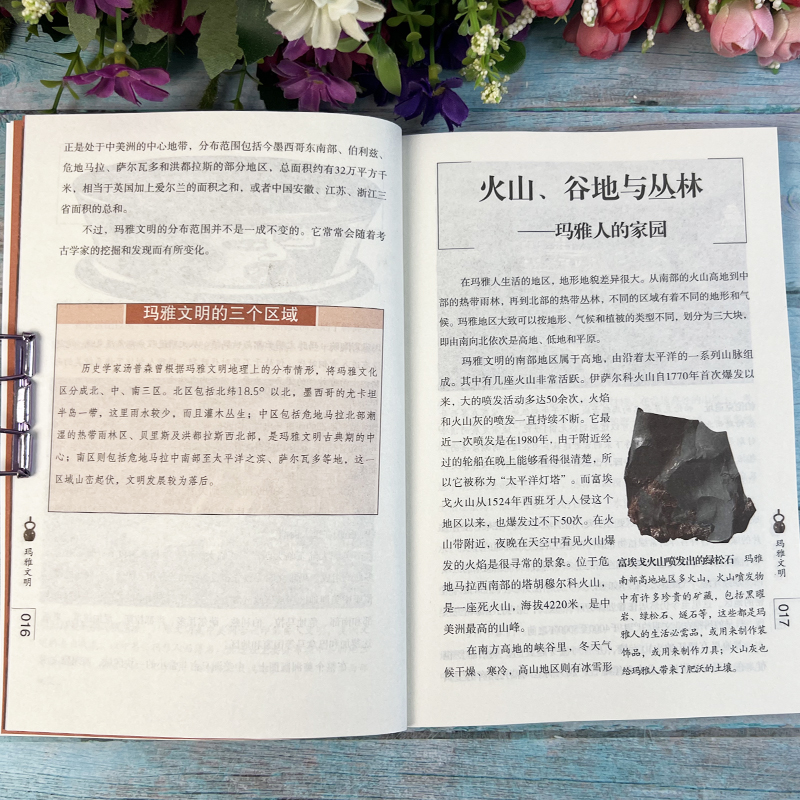 正是处于中美洲的中心地带，分布范围包括今墨西哥东南部、伯利兹、
危地马拉、萨尔瓦多和洪都拉斯的部分地区，总面积约有32万平方千
米，相当于英国加上爱尔兰的面积之和，或者中国安徽、江苏、浙江三
省面积的总和。
不过，玛雅文明的分布范围并不是一成不变的。它常常会随着考
古学家的挖掘和发现而有所变化。
玛雅文明的三个区域
历史学家汤普森曾根据玛雅文明地理上的分布情形，将玛雅文化
区分成北、中、南三区。北区包括北纬18.5°以北，墨西哥的尤卡坦
半岛一带，这里雨水较少，而且灌木丛生；中区包括危地马拉北部潮
湿的热带雨林区、贝里斯及洪都拉斯西北部，是玛雅文明古典期的中
心；南区则包括危地马拉中南部至太平洋之滨、萨尔瓦多等地，这一
区域山峦起伏，文明发展较为落后。
玛雅文明
016
火山、谷地与丛林
——玛雅人的家园
在玛雅人生活的地区，地形地貌差异很大。从南部的火山高地到中
部的热带雨林，再到北部的热带丛林，不同的区域有着不同的地形和气
候。玛雅地区大致可以按地形、气候和植被的类型不同，划分为三大块，
即由南向北依次是高地、低地和平原。
玛雅文明的南部地区属于高地，由沿着太平洋的一系列山脉组
成。其中有几座火山非常活跃。伊萨尔科火山自1770年首次爆发以
来，大的喷发活动多达50余次，火焰
和火山灰的喷发一直持续不断。它最
近一次喷发是在1980年，由于附近经
过的轮船在晚上能够看得很清楚，所
以它被称为“太平洋灯塔”。而富埃
戈火山从1524年西班牙人入侵这个
地区以来，也爆发过不下50次。在火
山带附近，夜晚在天空中看见火山爆
发的火焰是很寻常的景象。位于危
地马拉西南部的塔胡穆尔科火山，
是一座死火山，海拔4220米，是中
美洲最高的山峰。
在南方高地的峡谷里，冬天气
候干燥、寒冷，高山地区则有冰雪形
富埃戈火山喷发出的绿松石 玛雅
南部高地地区多火山，火山喷发物
中有许多珍贵的矿藏，包括黑曜
岩、绿松石、燧石等，这些都是玛
雅人的生活必需品，或用来制作装
饰品，或用来制作刀具；火山灰也
给玛雅人带来了肥沃的土壤。
玛雅文明
017